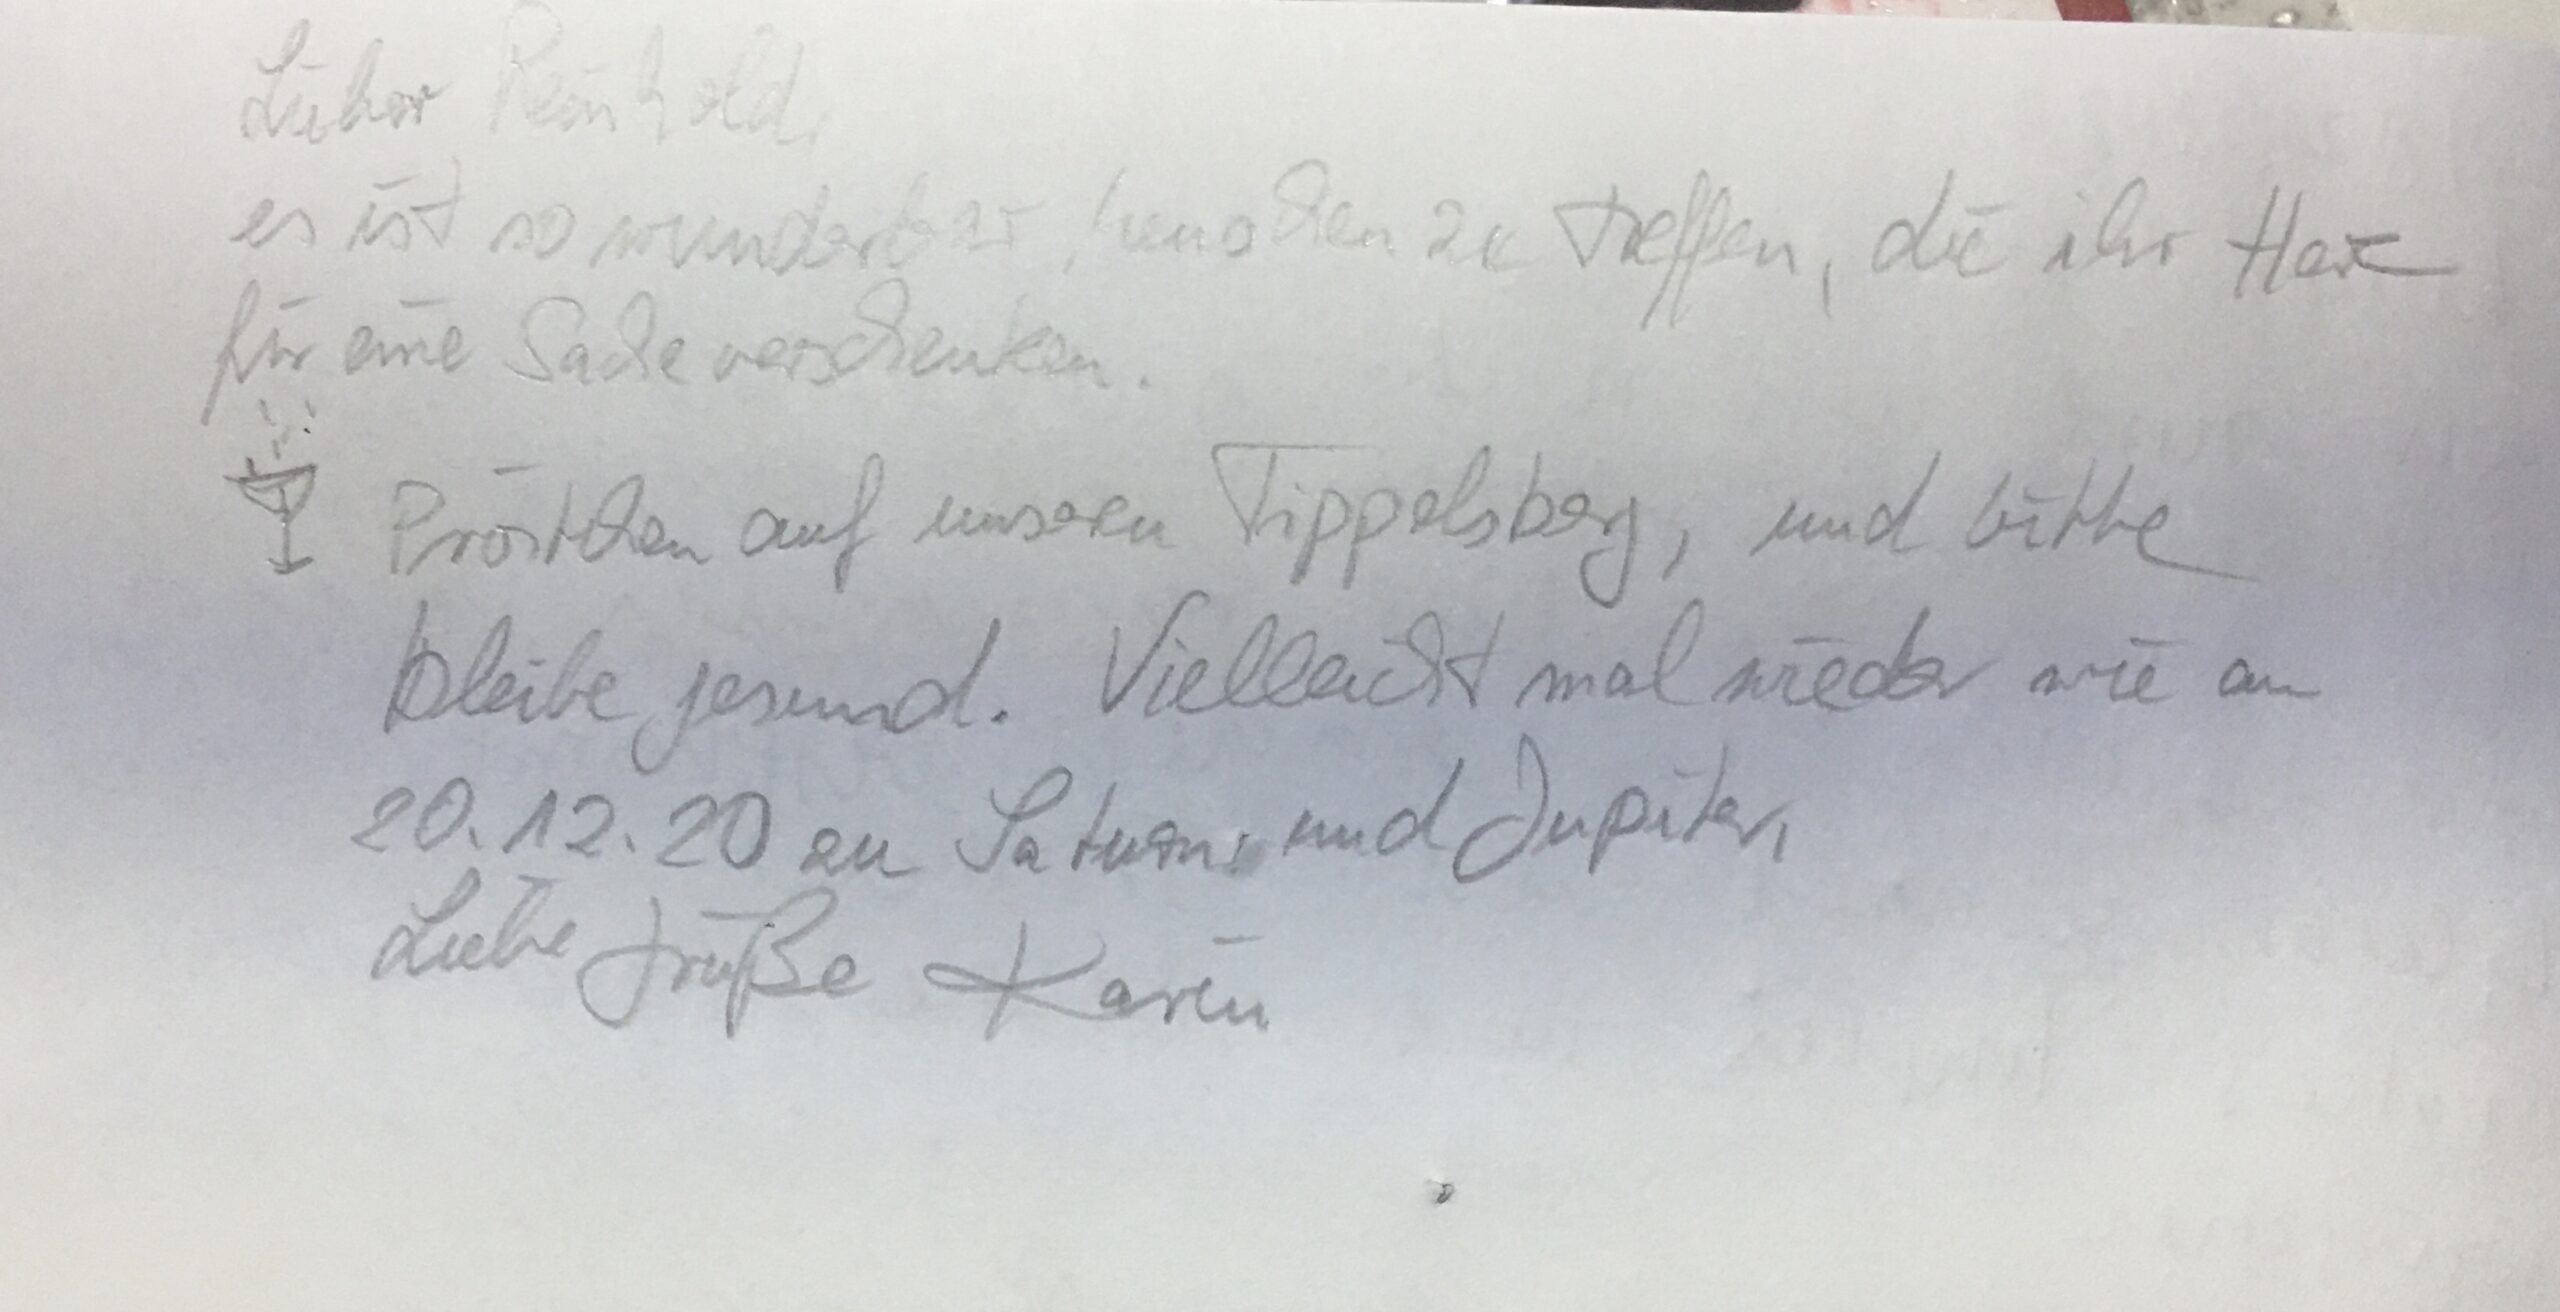 Lieber Reinhold,
es ist so wunderbar, Menschen zu treffen, die ihr Herz
für eine Sache verschenken.
Pröstchen auf unseren Tippelsberg, und bitte
bleibe gesund. Vielleicht mal wieder wie am
20.12.20 zu Saturn und Jupiter,
Liebe Grüße Karin